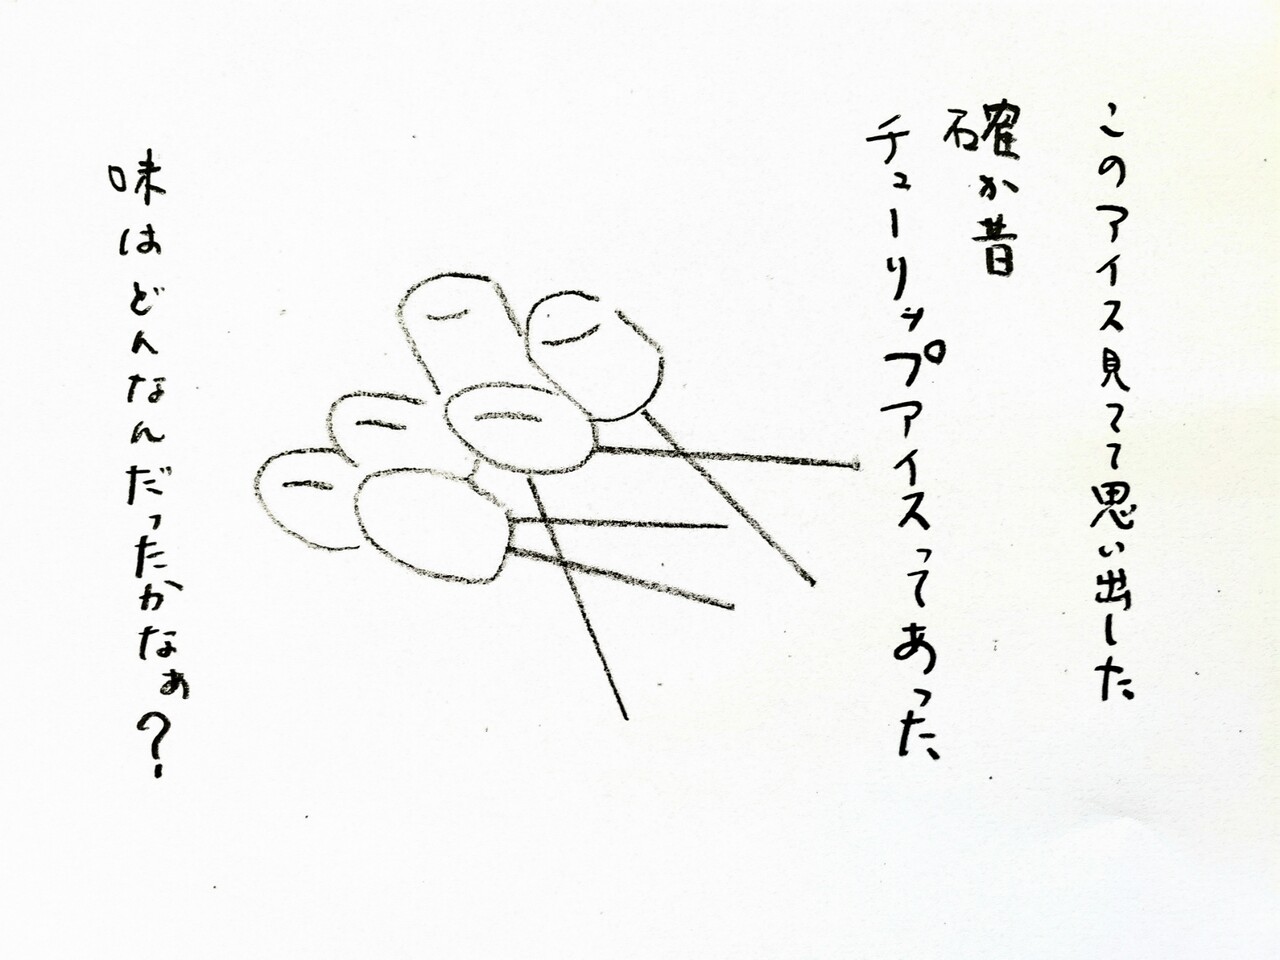 このアイス見てて思い出した
確か昔
チューリップアイスってあった
味はどんなんだったかなぁ?